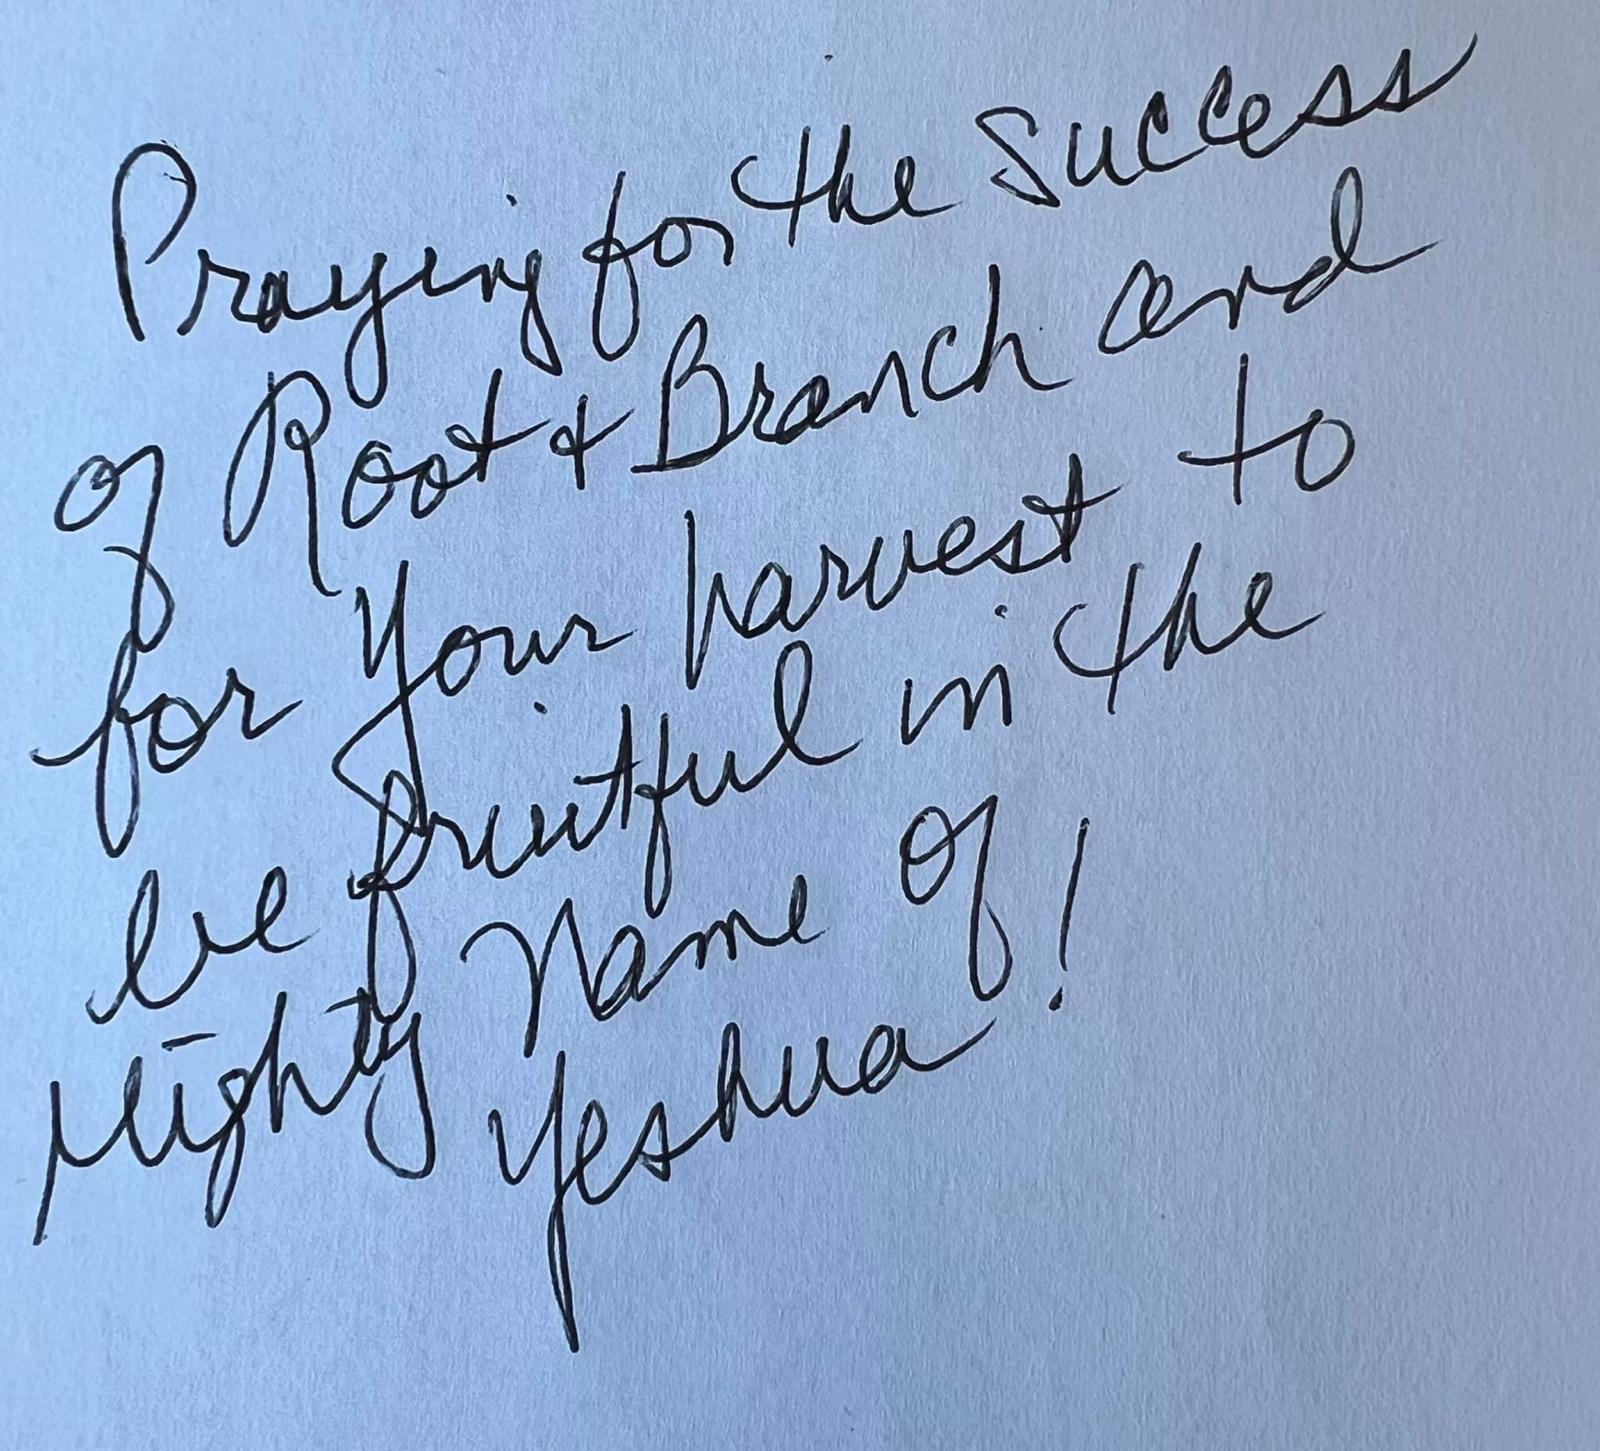 Praying for the Success
of Root & Branch and
for Your harvest to
be fruitful in the
Mighty Name of
Yeshua!